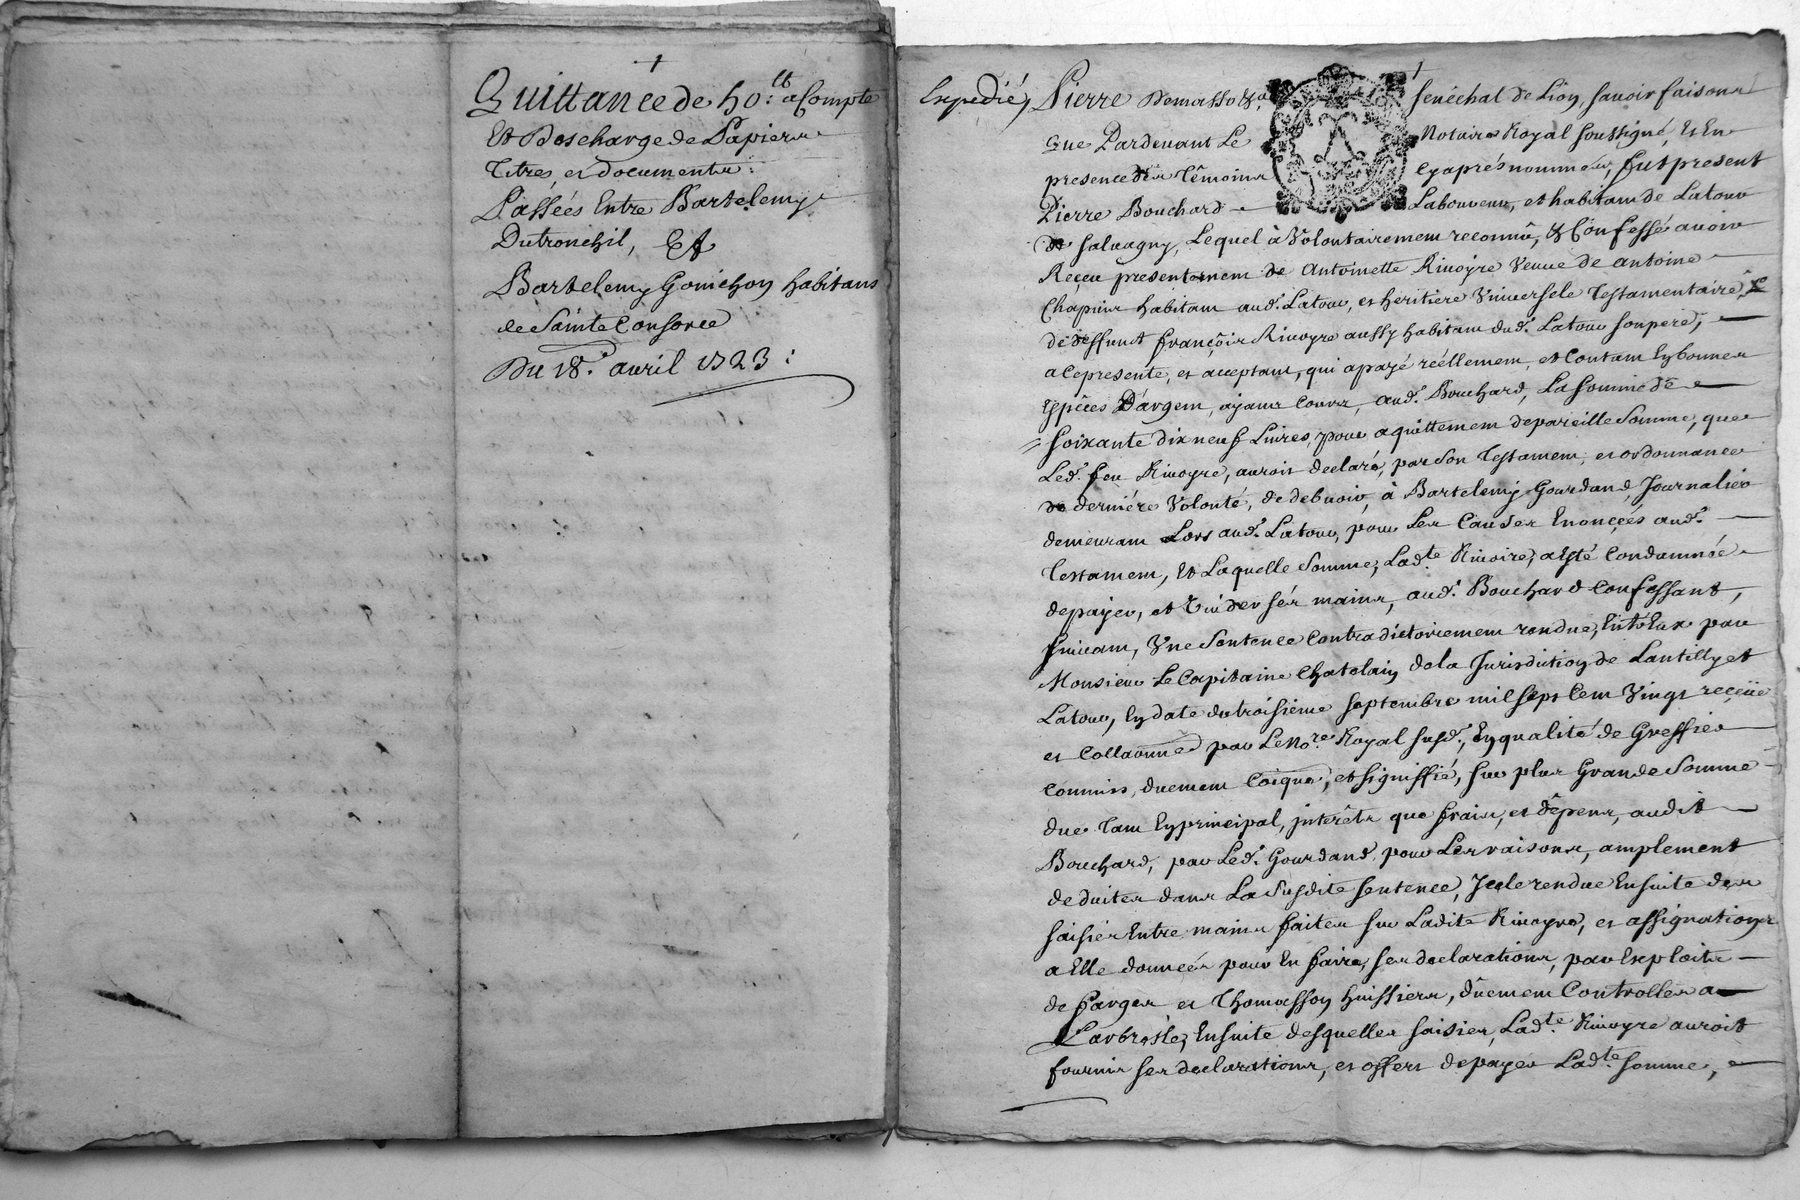 Quittance de 40.tt a Compte
Et Descharge de Papiers
Titres et documents.
Passées Entre Bartelemy
Dutronchil, Et
Bartelemy Gonichon habitans
de Sainte Consorce
Du 18. avril 1723 :
Expedié, Pierre Demasso &a senéchal de Lion, savoir faisons
Que Pardevant Le Notaire Royal soussigné, Et En
presence des Têmoins Cy aprés nommés, fut present
Pierre Bouchard Laboureur, et habitant de Latour
de Salvagny, Lequel à Volontairement reconnû, & Confessé avoir
Reçeu presentement de Antoinette Rivoyre Veuve de antoine
Chapuis habitant aud. Latour, et heritiere Universele Testamentaire
de deffunct françois Rivoyre aussy habitant dud. Latour son pere,
a Ce presente, et acceptant, qui a payé réellement, et Contant En bonnes
Espêces D'argent, ayant Cours, aud. Bouchard, La somme de
soixante dix neuf Livres, pour aquittement de pareille Somme, que
Led. feu Rivoyre, auroit declaré, par Son Testament, et ordonnance
de derniére Volonté, de debvoir, à Bartelemy Gourdand, Journalier
demeurant Lors aud. Latour, pour Les Causes Enonçées aud.
Testament, Et Laquelle Somme, Lad.te Rivoire, a Esté Condamnée
de payer, et Vuider sés mains, aud. Bouchard Confessant,
suivant, Une Sentence Contradictoirement rendue, Entre Eux par
Monsieur Le Capitaine Chatelain de la Jurisdiction de Lantilly et
Latour, En date du troisiéme septembre mil sept Cent Vingt reçeüe
et Collaonnée par Le No.re Royal susd., En qualité de Greffier
Commis, duement et signiffié, sur plus Grande Somme
due Tant En principal, interêts que frais, et dêpens, audit
Bouchard, par Led. Gourdand, pour Les raisons, amplement
deduites dans La Susdite sentence, Jcelle rendue Ensuite des
saisies Entre mains faites sur Ladite Rivoyre, et assignations
a Elle données pour En faire, ses declarations, par Exploits
de farges et Thomasson huissiers, dûement Controllés a
Larbresle, Ensuite desquelles saisies, Lad.te Rivoyre auroit
fournis ses declarations, et offert de payer Lad.te somme,